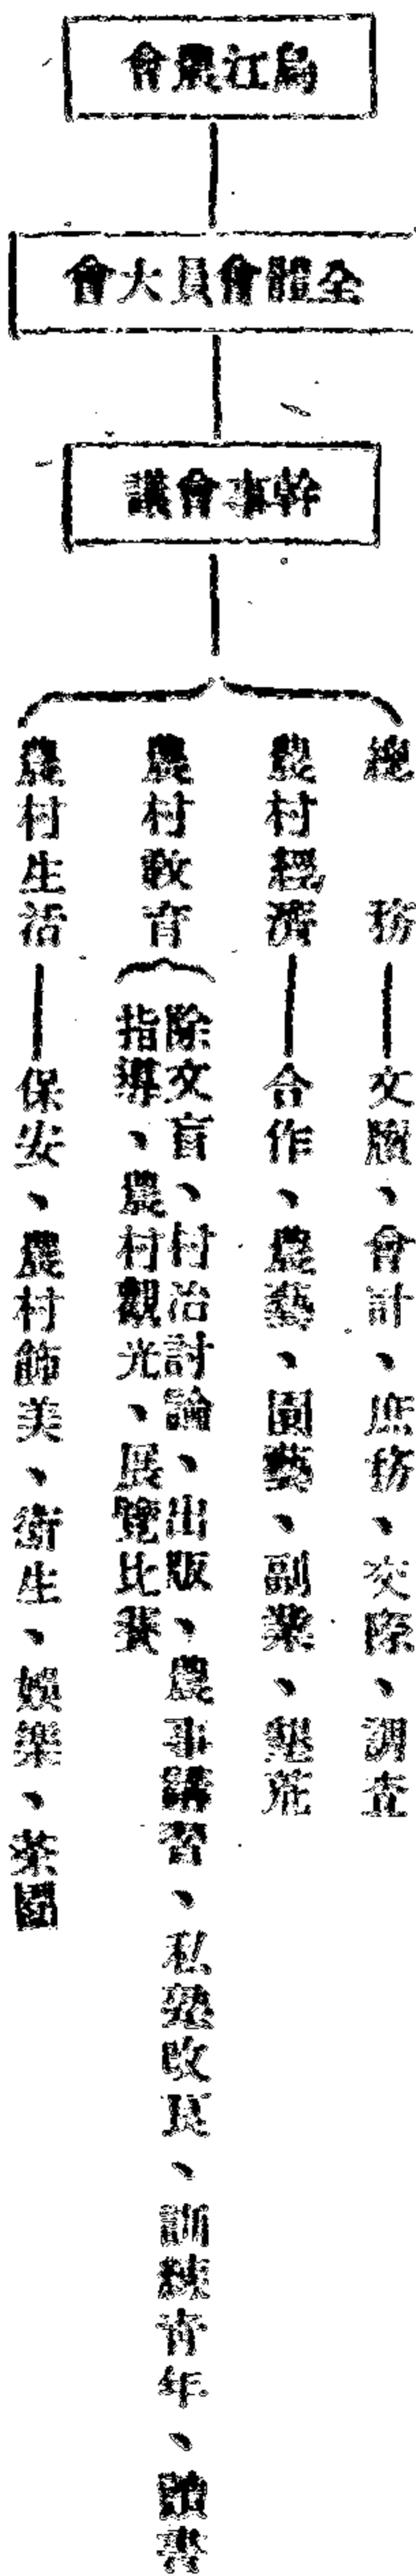 烏江農會
全體會員大會
幹事會議
總務
文牘、會計、庶務、交際、調查
農村經濟
合作、農藝、園藝、副業、墾荒
農村教育
除文盲、村治討論、出版、農事講習、私塾改良、訓練青年、讀書
指導、農村觀光、展覽比賽
農村生活
保安、農村飾美、衛生、娛樂、茶園